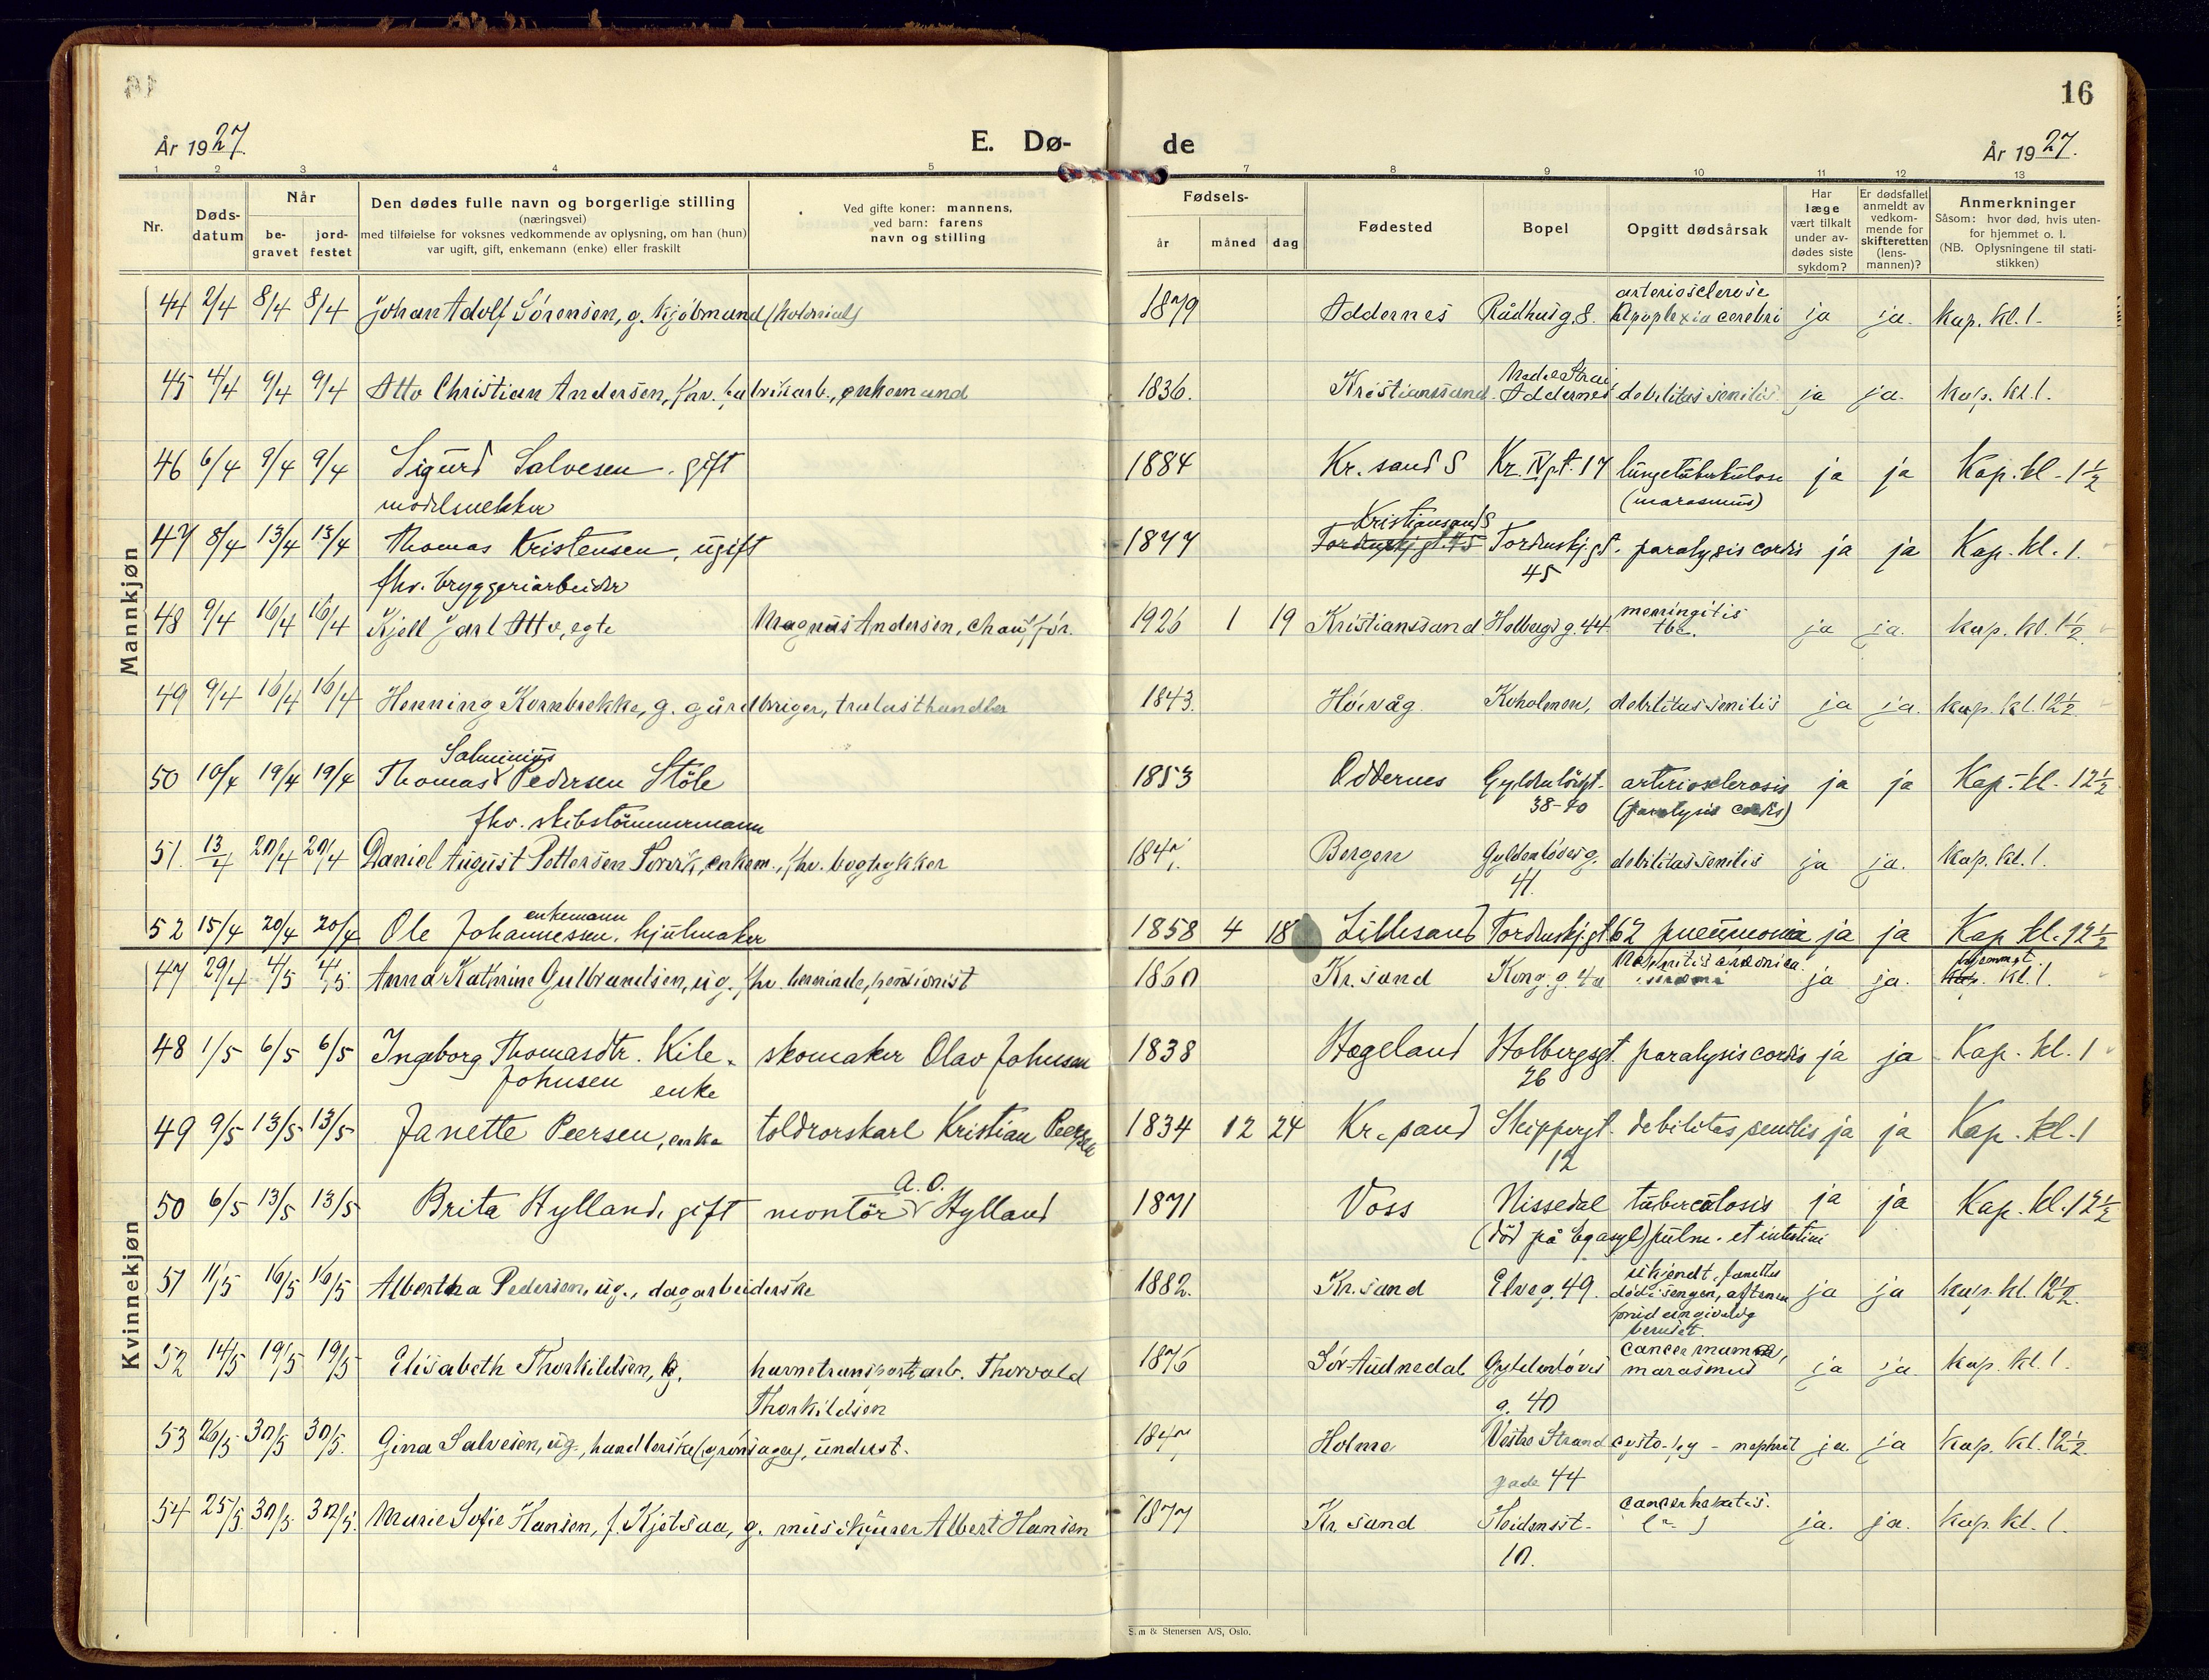 16
År 1927.
E. Dø-
de
År 1927.
1 2 3 4 5 7 8 9 10 11 12 13
Nr.
Døds-
datum
Når
be-
gravet
jord-
festet
Den dødes fulle navn og borgerlige stilling
(næringsvei)
med tilføielse for voksnes vedkommende av oplysning, om han (hun)
var ugift, gift, enkemann (enke) eller fraskilt
Ved gifte koner: mannens,
ved barn: farens
navn og stilling
Fødsels-
år måned dag
Fødested
Bopel
Opgitt dødsårsak
Har
læge
vært tilkalt
under av-
dødes siste
sykdom?
Er dødsfallet
anmeldt av
vedkom-
mende for
skifteretten
(lens-
mannen)?
Anmerkninger
Såsom: hvor død, hvis uten-
for hjemmet o. l.
(NB. Oplysningene til stati-
stikken)
Mannkjøn
44 2/4 8/4 8/4 Johan Adolf Sørensen, g. kjøbmand (kolonial) 1879 Oddernes Rådhusg. 8. arteriosclerose
Apoplexia cerebri ja ja. kap. kl. 1.
45 4/4 9/4 9/4 Otto Christian Andersen, fhv. fabrikarb., enkemand 1836. Kristianssand. Oddernes debilitas senilis ja ja. kap. kl. 1.
46 6/4 9/4 9/4 Sigurd Salvesen. gift 1884 Kr. sand S Kr. IV gt. 17 lungetuberkulose ja ja Kap. kl. 1 1/2
(marasmus)
47 8/4 13/4 13/4 Thomas Kristensen, ugift 1877 Kristiansand S
Tordenskj.gt. 45 Tordenskj.gt. paralysis cordis ja ja Kap. kl. 1.
fhv. bryggeriarbeider 45
48 9/4 16/4 16/4 Kjell Jarl Otto, egte Magnus Andersen, chauffør. 1926 1 19 Kristianssand Holbergs g. 44 meningitis
tbc. ja ja. kap. kl. 1 1/2
49 9/4 16/4 16/4 Henning Kornbrekke, g. gårdbruger, trælasthandler 1843. Høivåg. Koholmen, debilitas senilis ja ja. kap. kl. 12 1/2
50 10/4 19/4 19/4 Thomas Pedersen Støle 1853 Oddernes Gyldenløvsgt. arteriosclerosis ja ja Kap. kl. 12 1/2
fhv. skibstømmermann 38-40 (paralysis cordis)
51. 13/4 20/4 20/4 Daniel August Pettersen Torvik, enkem., fhv. bogtrykker Bergen Gyldenløves g. debilitas senilis ja ja. kap. kl. 1.
41.
52 15/4 20/4 20/4 Ole Johannessen, enkemann hjulmaker 1858 4 18 Lillesand Tordenskj.gt 62 pneumonia ja ja Kap kl. 12 1/2
Kvinnekjøn
47 29/4 4/5 4/5. Anna Kathrine Gulbrandsen, ug. fhv. lærerinde, pensionist 1860 Kr. sand Kong. g. 4a ja ja. kl. 1.
48 1/5 6/5 6/5 Ingeborg Thomasdtr. Kile. skomaker Olav Johnsen 1838 Hægeland Holbergsgt. paralysis cordis ja ja Kap. kl. 1
Johnsen enke 26
49 9/5 13/5 13/5 Janette Peersen, enke toldrorskarl Kristian Peersen 1834 12 24 Kr. sand Skippergt. debilitas senilis ja ja Kap. kl. 1
12
50 6/5 13/5 13/5 Brita Hylland, gift montør A. O. Hylland 1871 Voss Nissedal tuberculosis ja ja Kap. kl. 12 1/2
(død på Egasyl) pulm. et intestini
51 11/5 16/5 16/5 Albertha Pedersen, ug., dagarbeiderske 1882. Kr. sand Elveg. 49. ukjendt, fantes
død i sengen, aftenen ja ja kap. kl. 12 1/2.
beruset.
52 14/5 19/5 19/5 Elisabeth Thorkildsen, g. havnetransportarb. Thorvald 1876 Sør-Audnedal Gyldenløves cancer mammae,
marasmus ja ja kap. kl. 1.
Thorkildsen g. 40
53 26/5 30/5 30/5. Gina Salvesen, ug., handlerske (grønsager), underst. 1847 Holme Vestre Strand ja. ja kap. kl. 12 1/2.
gade 44
54 25/5 30/5 30/5. Marie Sofie Hansen, f. Kjetsaa, g. musikhuser Albert Hansen 1877 Kr. sand cancer hepatis. ja. ja. kap. kl. 1.
10.
& Stenersen A/S, Oslo.